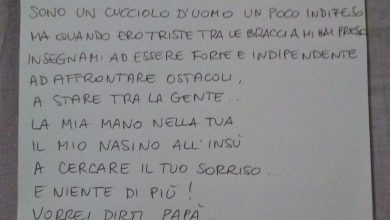 SONO UN CUCCIOLO D'UOMO UN POCO INDIFESO
MA QUANDO ERO TRISTE TRA LE BRACCIA MI HAI PRESO
INSEGNAMI AD ESSERE FORTE E INDIPENDENTE
AD AFFRONTARE OSTACOLI,
A STARE TRA LA GENTE...
LA MIA MANO NELLA TUA
IL MIO NASINO ALL'INSÙ
A CERCARE IL TUO SORRISO...
E NIENTE DI PIÙ!
VORREI DIRTI PAPÀ